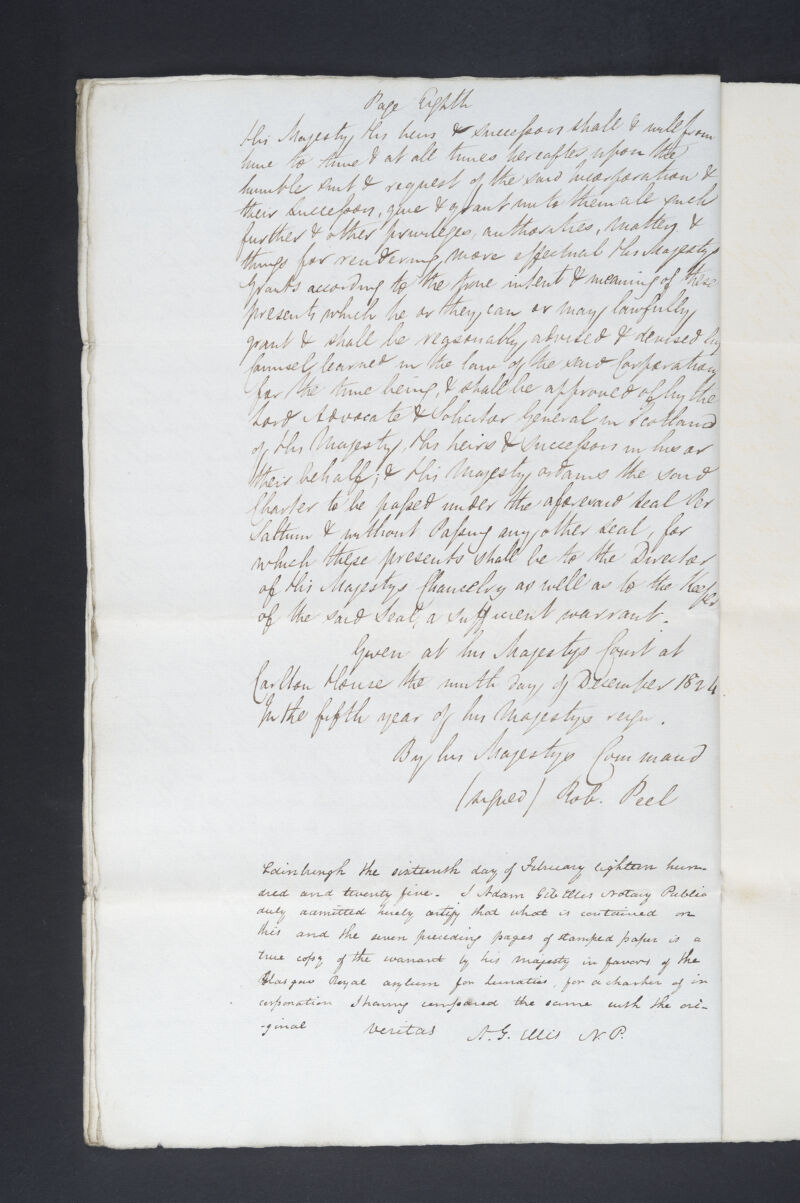 Page Eighth
His Majesty His heirs & successors shall & will from
time to time & at all times hereafter, upon the
humble suit & request of the said Incorporation &
their Successors, give & grant unto them all such
further & other privileges, authorities, matters &
things for rendering more effectual His Majestys
Grants according to the true intent & meaning of these
presents which he or they can or may lawfully
grant & shall be reasonably advised & devised by
Counsel learned in the law of the said Corporation
for the time being, & shall be approved of by the
Lord Advocate & Solicitor General in Scotland
of His Majesty, His heirs & Successors in his or
their behalf; & His Majesty ordains the said
Charter to be passed under the aforesaid Seal Per
Saltum & without Passing any other seal, for
which these presents shall be to the Director
of His Majestys Chancelry as well as to the Keeper
of the said Seal, a sufficient warrant.
Given at his Majestys Court at
Carlton House the ninth day of December 1824
In the fifth year of his Majestys reign.
By his Majestys Command
(signed) Rob. Peel
Edinburgh the sixteenth day of February eighteen hun-
dred and twenty five. I Adam Gib Ellis Notary Public
duly admitted hereby certify that what is contained on
this and the seven preceding pages of stamped paper is a
true copy of the warrant by his majesty in favors of the
Glasgow Royal asylum for Lunatics, for a charter of in
corporation I having compared the same with the ori-
-ginal Veritas A. G. Ellis N.P.